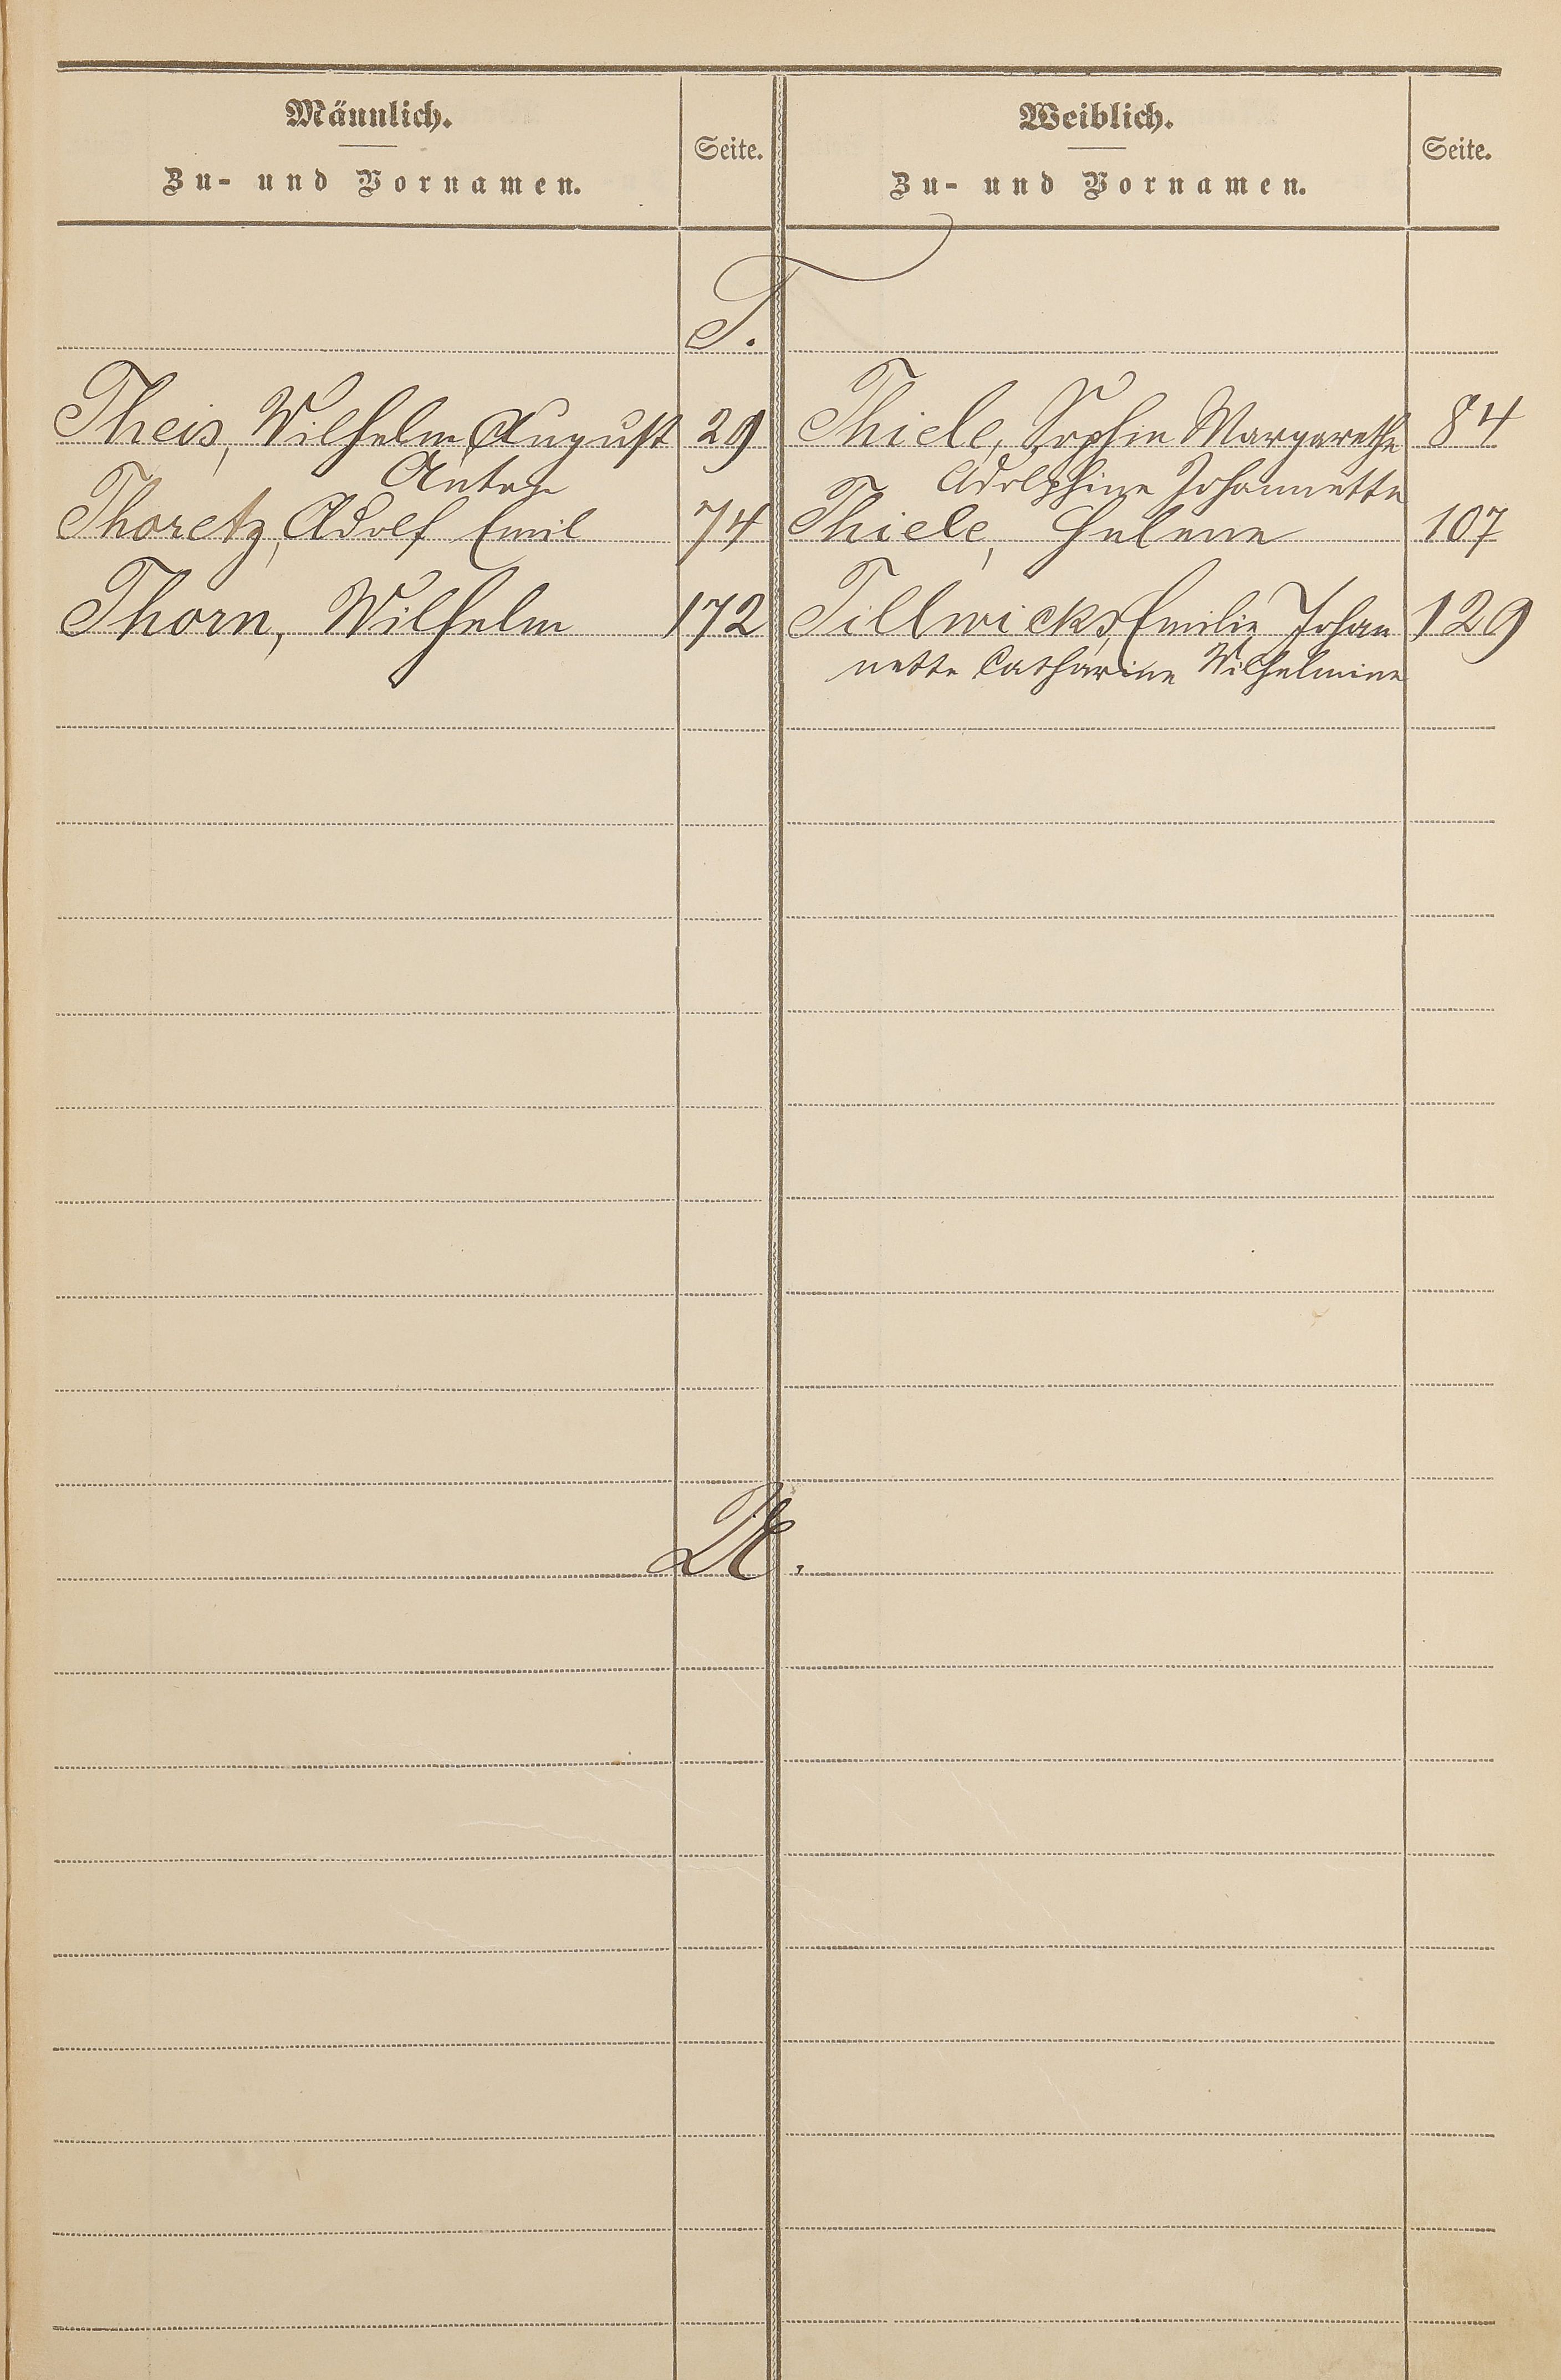 Männlich.
Zu- und Vornamen.
Seite.
Weiblich.
Zu- und Vornamen.
Seite.
T.
Theis, Wilhelm August 29 Thiele, Sophie Margarethe 84
Anton Adolphine Johannette
Thoretz, Adolf Emil 74 Thiele, Helene 107
Thorn, Wilhelm 172 Tillwicks, Emilie Johan 129
nette Catharine Wilhelmine
U.